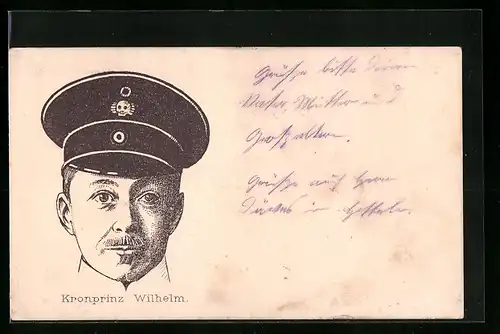 Grüße bitte Deinen
Vater, Mutter und
Großeltern.
Grüße auch Herrn
Kronprinz Wilhelm.